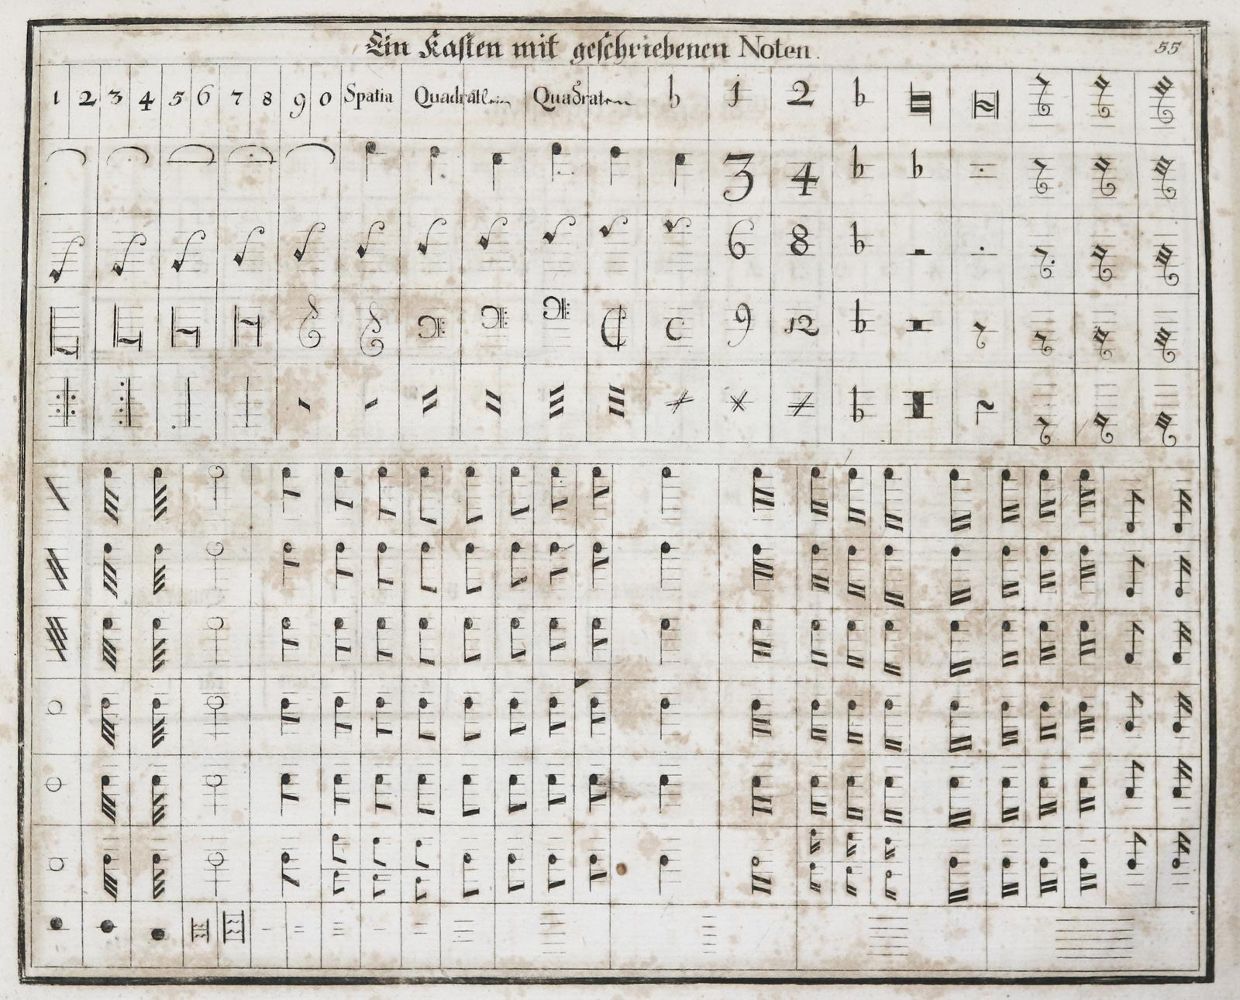 Ein Kasten mit geschriebenen Noten.
55
1 2 3 4 5 6 7 8 9 0 Spatia Quadrätlein Quadraten b 1 2 b
3 4 b b
6 8 b
C 9 12 b
b